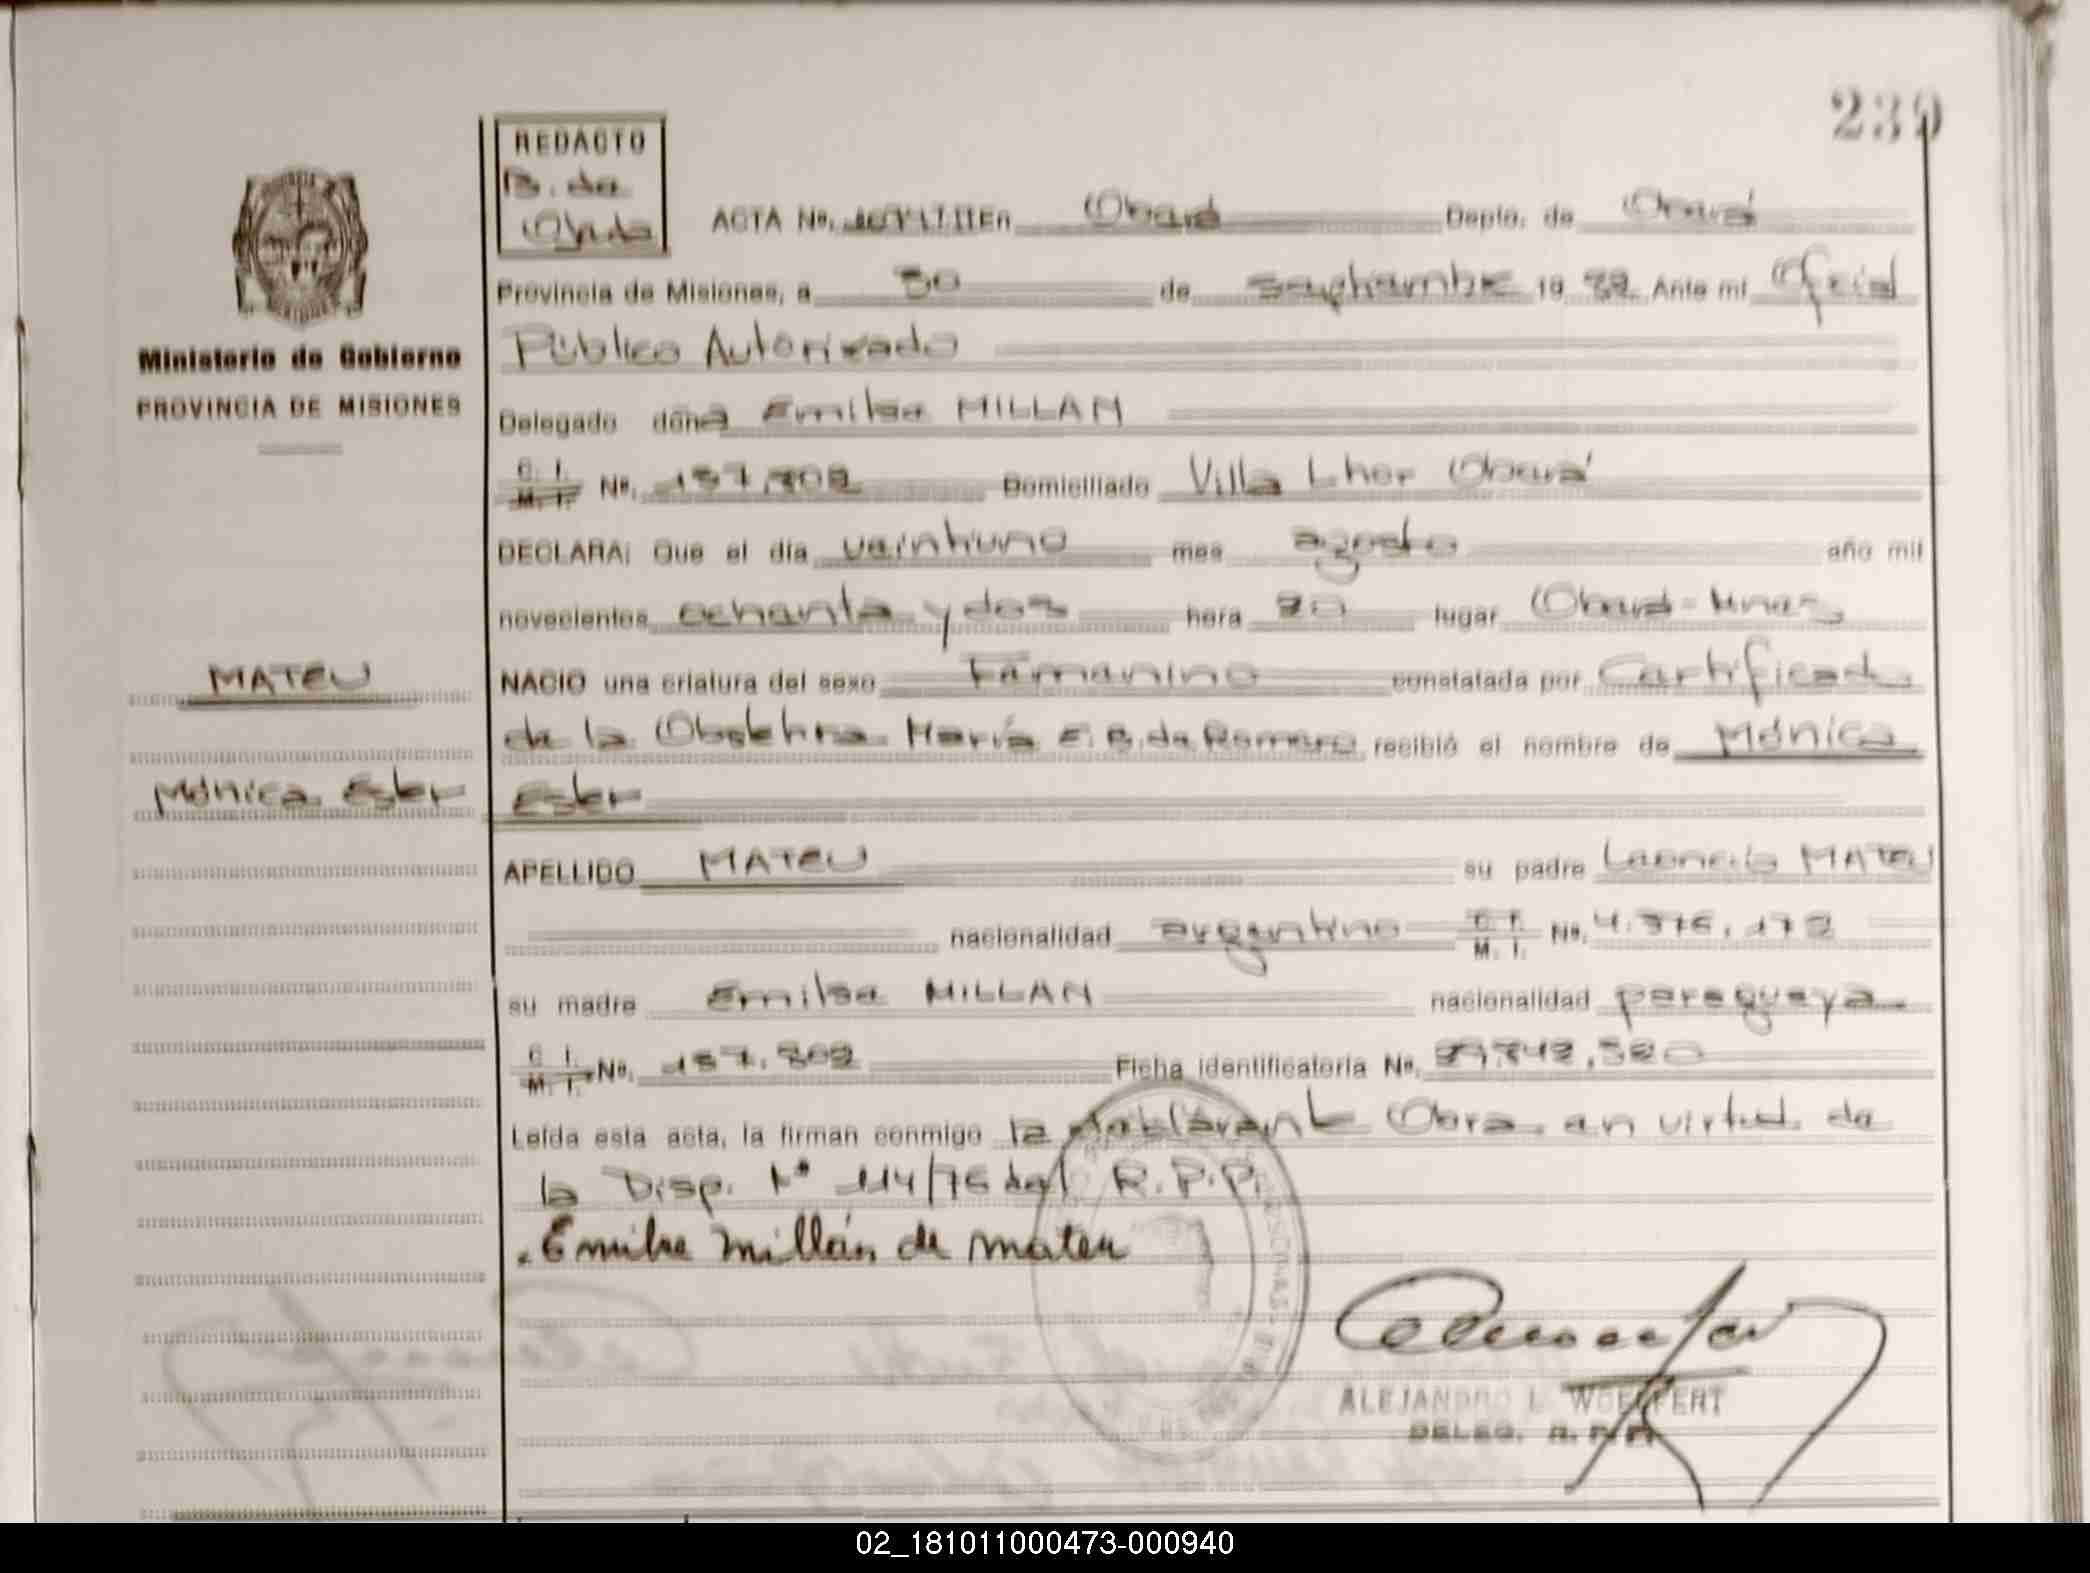 239
REDACTO
B. da
ACTA No. Oberá Depto. de Oberá
Provincia de Misiones, a 30 de septiembre 19 82 Ante mí Oficial
Ministerio de Gobierno
Público Autorizado
PROVINCIA DE MISIONES
Delegado doña Emilse MILLAN
C. I.
M. I. Nº. 157.302 Domiciliado Villa Lher Oberá
DECLARA: Que el día veintiuno mes agosto año mil
novecientos ochenta y dos hora 20 lugar Oberá-Mnes
MATEU
NACIO una criatura del sexo Femenino constatada por Certificado
de la Obstetra María E. B. de Romero recibió el nombre de Mónica
Mónica Ester
Ester
APELLIDO MATEU su padre Leoncio MATEU
nacionalidad argentino C. I.
M. I. Nº.
su madre Emilse MILLAN nacionalidad paraguaya
C. I.
M. I. Nº. 157.302 Ficha identificatoria Nº.
Leída esta acta, la firman conmigo la declarante Obra en virtud de
la Disp. Nº 114/76 del R.P.P.
Emilse millán de mateu
ALEJANDRO L. WOEFFERT
DELEG. R. P. P.
02_181011000473-000940